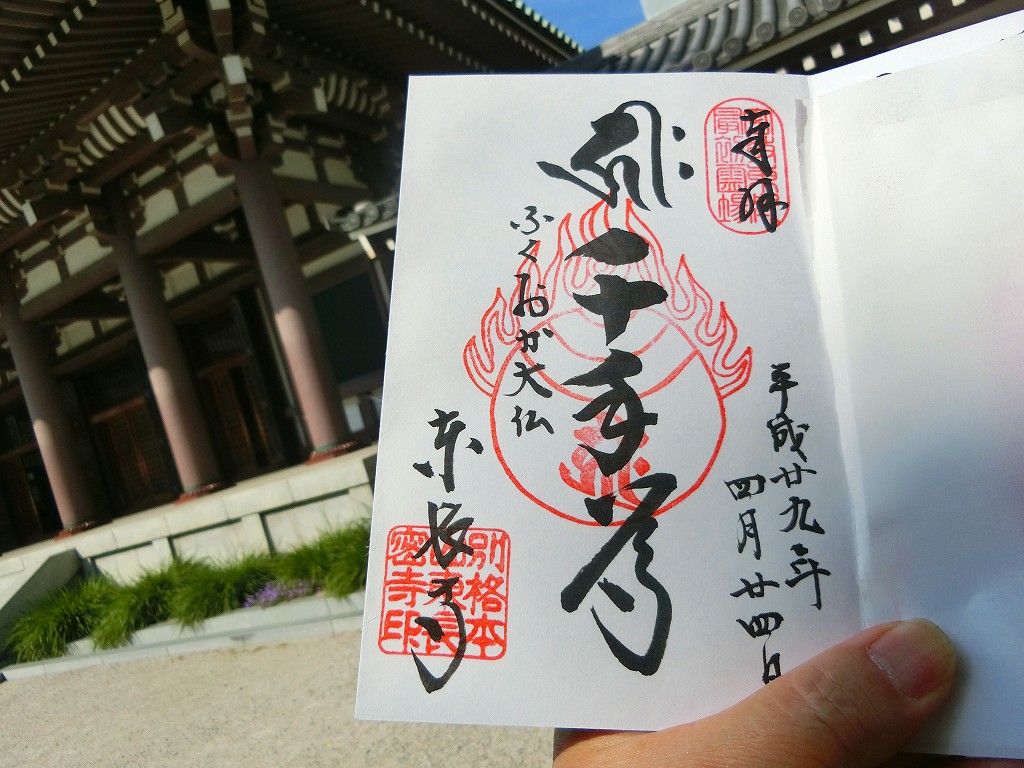 奉拝
最初霊場
平成廿九年
四月廿四日
千手尊
ふくおか大仏
東長寺
別格本
山東長
密寺印